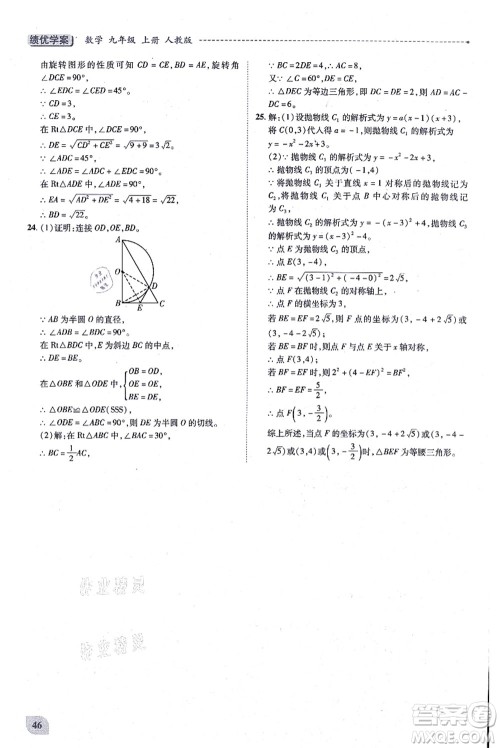 绩优学案 数学 九年级 上册 人教版
由旋转图形的性质可知 CD = CE, BD = AE, 旋转角
∠DCE = 90°,
∴ ∠EDC = ∠CED = 45°.
∵ CD = 3,
∴ CE = 3.
在 Rt△DCE 中, ∠DCE = 90°,
∴ DE = √(CD² + CE²) = √(9 + 9) = 3√2.
∵ ∠ADC = 45°,
∴ ∠ADE = ∠ADC + ∠EDC = 90°.
在 Rt△ADE 中, ∠ADE = 90°,
∴ EA = √(AD² + DE²) = √(4 + 18) = √22,
∴ BD = √22.
24. (1)证明:连接 OD, OE, BD.
A
O
D
B E C
∵ AB 为半圆 O 的直径,
∴ ∠ADB = ∠BDC = 90°.
在 Rt△BDC 中, E 为斜边 BC 的中点,
∴ DE = BE.
在 △OBE 和 △ODE 中, { OB = OD, OE = OE, BE = DE,
∴ △OBE ≌ △ODE(SSS),
∴ ∠ODE = ∠ABC = 90°, ∴ DE 为半圆 O 的切线.
(2)解:在 Rt△ABC 中, ∠BAC = 30°,
∴ BC = 1/2 AC.
∵ BC = 2DE = 4, ∴ AC = 8.
又 ∵ ∠C = 60°, DE = CE,
∴ △DEC 为等边三角形, 即 DC = DE = 2,
∴ AD = AC − DC = 6.
25. 解:(1)设抛物线 C₁ 的解析式为 y = a(x − 1)(x + 3),
将 C(0,3)代入得 a = −1, ∴ 抛物线 C₁ 的解析式为
y = −x² − 2x + 3.
(2)∵ 抛物线 C₁ 的顶点为(−1,4),
∴ 抛物线 C₁ 关于直线 x = 1 对称后的抛物线记为
C₂, 将抛物线 C₂ 关于点 B 中心对称后的抛物线记
为 C₃, ∴ 抛物线 C₃ 的解析式为 y = (x − 3)² − 4.
∵ 点 E 为抛物线 C₃ 的顶点,
∴ 点 E(3, −4),
∴ BE = √((3 − 1)² + (−4 − 0)²) = 2√5.
∵ 点 E 在抛物线 C₃ 的对称轴上,
∴ 点 F 的横坐标为 3.
若 BE = BF, 则点 F 与点 E 关于 x 轴对称,
∴ 点 F(3,4).
若 BE = EF = 2√5,
∴ 点 F(3, −4 + 2√5)或(3, −4 − 2√5).
若 BF = EF, 则 BF = EF = 5/2,
∴ 点 F(3, −3/2).
综上所述, 当点 F 的坐标为(3, −4 + 2√5)或(3,
−4 − 2√5)或(3,4)或(3, −3/2)时, △BEF 为等腰三角形.
作业精灵
作业精灵
46